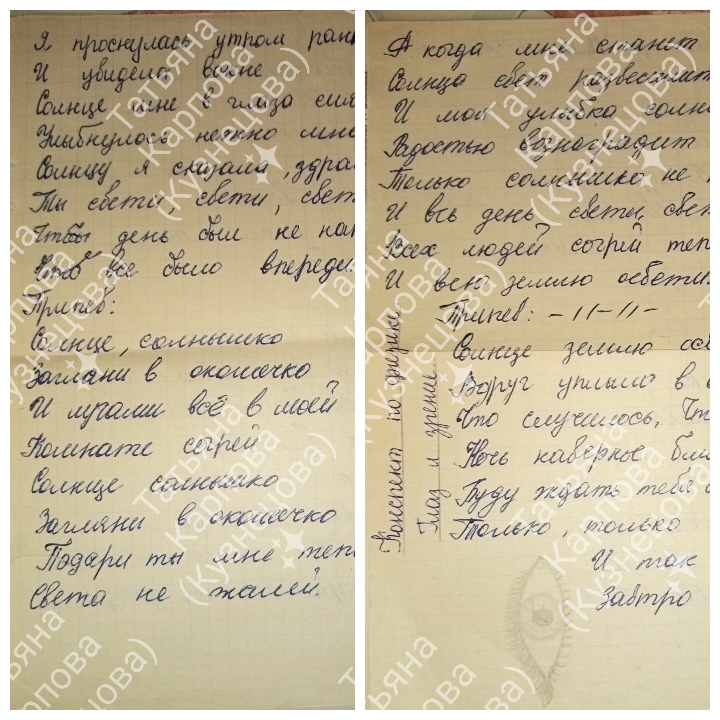 Я проснулась утром ран
И увидела во сне
Солнце мне в глаза сия
Улыбнулось нежно мне
Солнцу я сказала, здра
Ты свети, свети, свет
Чтобы день был не на
Чтоб все было впереди.
Припев:
Солнце, солнышко
Загляни в окошечко
И лучами всё в моей
Комнате согрей
Солнце, солнышко
Загляни в окошечко
Подари ты мне теп
Света не жалей.
А когда мне станет
Солнца свет развеселит
И моя улыбка солн
Радостью вознаградит
Только солнышко не
И всь день свети, свет
Всех людей согрей теп
И всю землю освети.
Припев: -//-//-
Солнце землю осв
Вдруг уплыло в
Что случилось, Чт
Ночь наверное бли
Буду ждать тебя
Только, только
И так
Завтра
Конспект по физике
Глаз и зрение
Татьяна
Карпова
(Кузнецова)